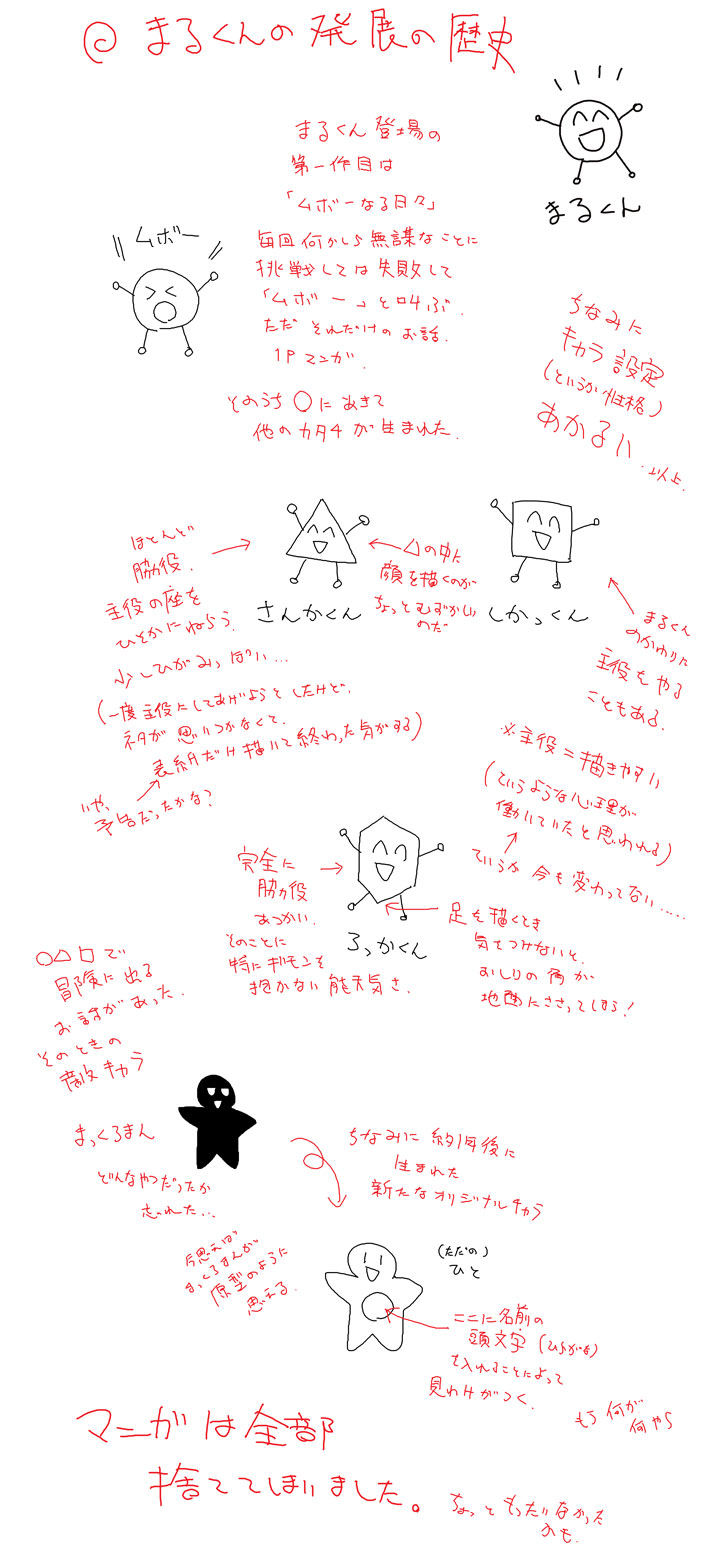 ◎ まるくんの発展の歴史
まるくん
まるくん登場の
第一作目は
「ムボーなる日々」
毎回何かしら無謀なことに
挑戦しては失敗して
「ムボー」と叫ぶ.
ただ それだけのお話.
1Pマンガ.
ムボー
そのうち ○に あきて
他のカタチが生まれた.
ちなみに
キャラ設定
(というか性格)
あかるい
…以上.
ほとんど
脇役.
主役の座を
ひそかにねらう.
少しひがみっぽい…
(一度主役にしてあげようとしたけど.
ネタが思いつかなくて.
表紙だけ描いて終わった気がする)
いや、
予告だったかな?
さんかくん
△の中に
顔を描くのが
ちょっとむずかしい
のだ
しかっくん
まるくん
のかわりに
主役をやる
こともある.
※主役=描きやすい
(というような心理が
働いていたと思われる)
ていうか 今も変わってない……
完全に
脇役
あつかい.
そのことに
特にギモンを
抱かない能天気さ.
ろっかくん
足を描くとき
気をつけないと.
おしりの角が
地面にささってしまう!
○△□で
冒険に出る
お話があった.
そのときの
敵キャラ
まっくろまん
どんなやつだったか
忘れた…
ちなみに 約1年後に
生まれた
新たなオリジナルキャラ
今思えば
まっくろまんが
原型のように
思える.
(ただの)
ひと
ここに名前の
頭文字 (ひらがな)
を入れることによって
見わけがつく.
もう 何が
何やら
マンガは全部
捨ててしまいました。
ちょっともったいなかった
かも.